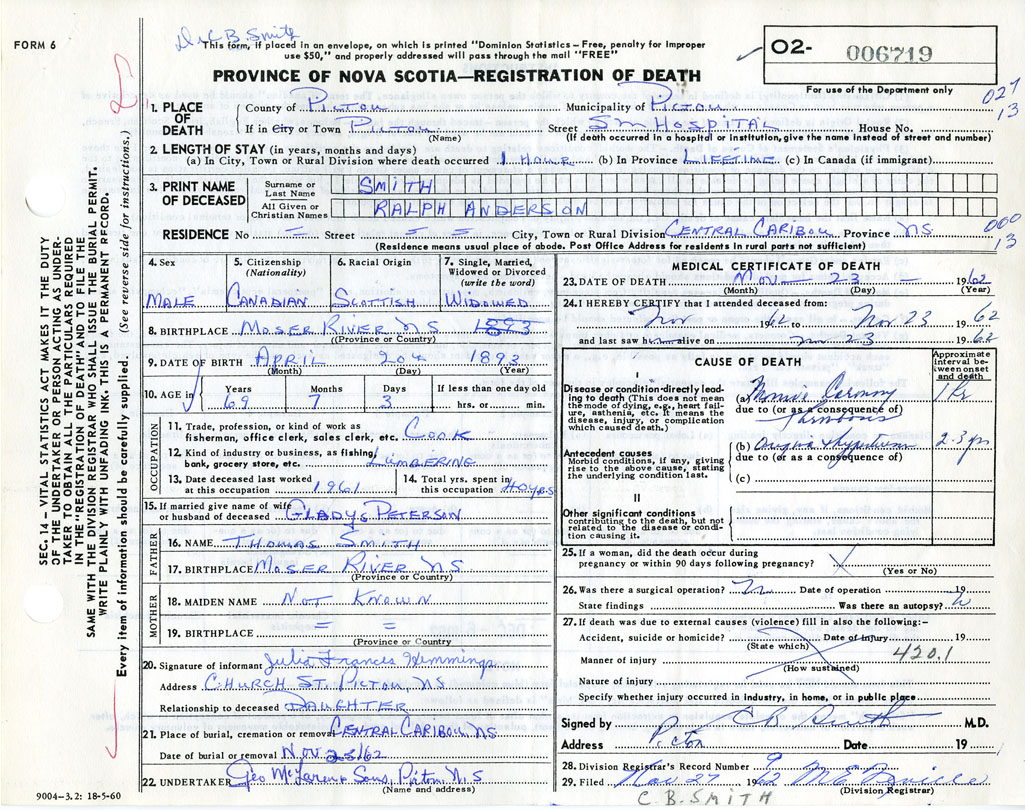 Dr C B. Smith
FORM 6
This form, if placed in an envelope, on which is printed "Dominion Statistics – Free, penalty for improper
use $50," and properly addressed will pass through the mail "FREE"
PROVINCE OF NOVA SCOTIA—REGISTRATION OF DEATH
O2- 006719
For use of the Department only
027
13
1. PLACE OF DEATH
County of PICTOU Municipality of PICTOU
If in City or Town PICTOU (Name) Street SM HOSPITAL House No.
(If death occurred in a hospital or institution, give the name instead of street and number)
2. LENGTH OF STAY (in years, months and days)
(a) In City, Town or Rural Division where death occurred 1 HOUR (b) In Province LIFETIME (c) In Canada (if immigrant)
3. PRINT NAME OF DECEASED
Surname or Last Name SMITH
All Given or Christian Names RALPH ANDERSON
RESIDENCE No = Street = = City, Town or Rural Division CENTRAL CARIBOU Province NS
(Residence means usual place of abode. Post Office Address for residents in rural parts not sufficient)
000
13
4. Sex
MALE
5. Citizenship (Nationality)
CANADIAN
6. Racial Origin
SCOTTISH
7. Single, Married, Widowed or Divorced (write the word)
WIDOWED
8. BIRTHPLACE MOSER RIVER NS 1893
(Province or Country)
9. DATE OF BIRTH APRIL 20th 1893
(Month) (Day) (Year)
10. AGE in Years Months Days If less than one day old
69 7 3 hrs. or min.
OCCUPATION
11. Trade, profession, or kind of work as
fisherman, office clerk, sales clerk, etc. COOK
12. Kind of industry or business, as fishing,
bank, grocery store, etc. LUMBERING
13. Date deceased last worked
at this occupation 1961
14. Total yrs. spent in
this occupation 40 YRS
15. If married give name of wife
or husband of deceased GLADYS PETERSON
FATHER
16. NAME THOMAS SMITH
17. BIRTHPLACE MOSER RIVER NS
(Province or Country)
MOTHER
18. MAIDEN NAME NOT KNOWN
19. BIRTHPLACE = =
(Province or Country)
20. Signature of informant Julia Frances Hemmings
Address CHURCH ST. PICTOU, NS
Relationship to deceased DAUGHTER
21. Place of burial, cremation or removal CENTRAL CARIBOU NS.
Date of burial or removal NOV 25/62
22. UNDERTAKER Geo McLaren & Sons, Pictou N.S
(Name and address)
9004–3.2: 18-5-60
SEC. 14 – VITAL STATISTICS ACT MAKES IT THE DUTY
OF THE UNDERTAKER OR PERSON ACTING AS UNDER-
TAKER TO OBTAIN ALL THE PARTICULARS REQUIRED
IN THE "REGISTRATION OF DEATH" AND TO FILE THE
SAME WITH THE DIVISION REGISTRAR WHO SHALL ISSUE THE BURIAL PERMIT.
WRITE PLAINLY WITH UNFADING INK. THIS IS A PERMANENT RECORD.
Every item of information should be carefully supplied (See reverse side for instructions.)
MEDICAL CERTIFICATE OF DEATH
23. DATE OF DEATH Nov – 23 – 1962
(Month) (Day) (Year)
24. I HEREBY CERTIFY that I attended deceased from:
Nov 1962 to Nov 23 1962
and last saw h alive on Nov 23 1962
CAUSE OF DEATH
Approximate interval between onset and death
I
Disease or condition directly lead-
ing to death (This does not mean
the mode of dying, e.g., heart fail-
ure, asthenia, etc. It means the
disease, injury, or complication
which caused death.)
(a) Coronary 1 hr
due to (or as a consequence of)
Thrombosis
Antecedent causes
Morbid conditions, if any, giving
rise to the above cause, stating
the underlying condition last.
(b) Angina & Hypertension 2-3 yrs
due to (or as a consequence of)
(c)
II
Other significant conditions
contributing to the death, but not
related to the disease or condi-
tion causing it.
25. If a woman, did the death occur during
pregnancy or within 90 days following pregnancy? X
(Yes or No)
26. Was there a surgical operation? Date of operation 19
State findings Was there an autopsy?
27. If death was due to external causes (violence) fill in also the following:–
Accident, suicide or homicide? (State which) Date of injury 19
Manner of injury (How sustained) 420.1
Nature of injury
Specify whether injury occurred in industry, in home, or in public place
Signed by C B Smith M.D.
Address Pictou Date 19
28. Division Registrar's Record Number 9
29. Filed Nov 27 1962
(Division Registrar)
C. B. SMITH